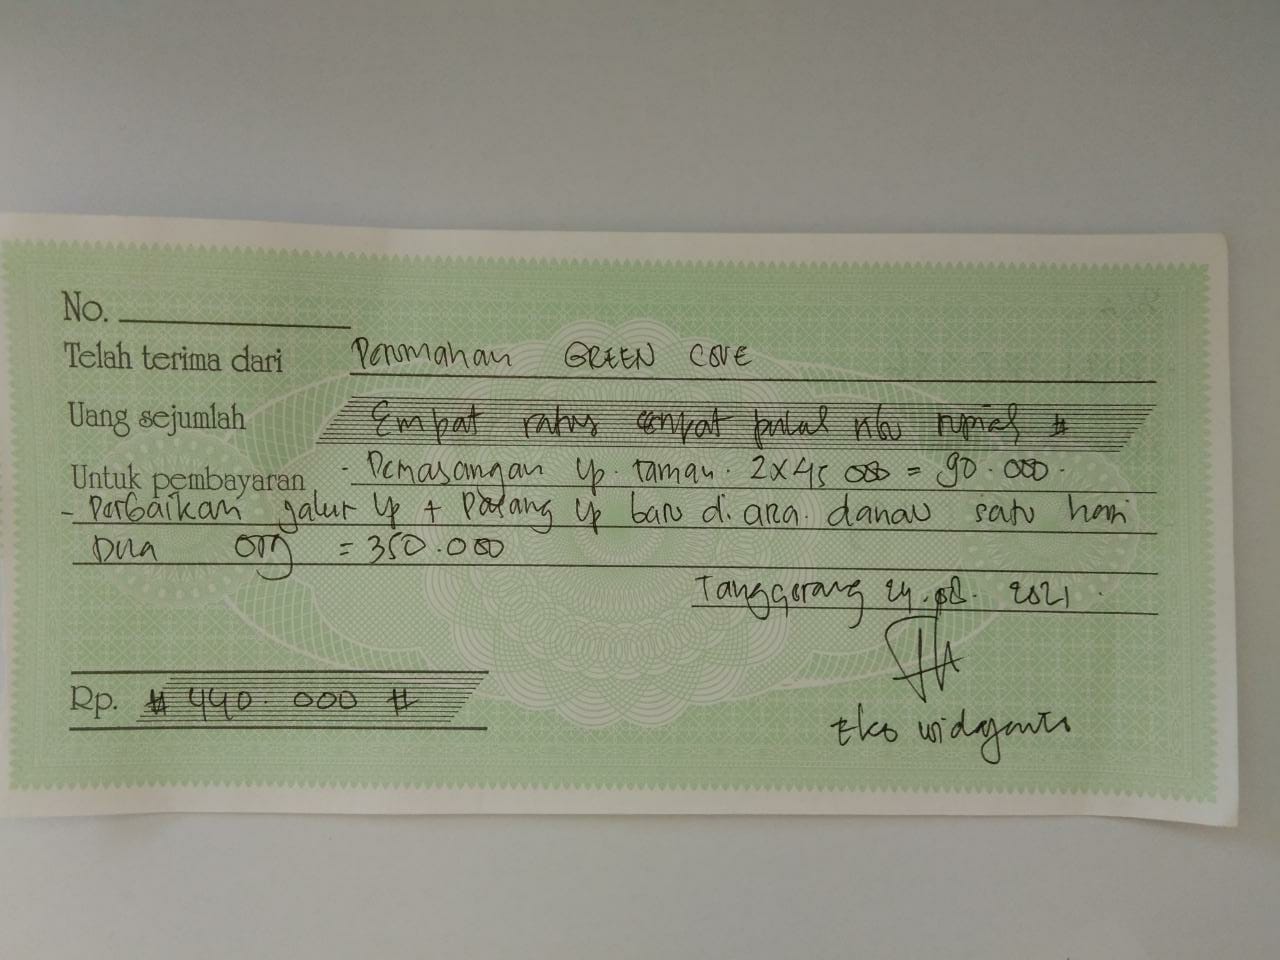 No.
Telah terima dari Perumahan GREEN COVE
Uang sejumlah Empat ratus empat puluh ribu rupiah #
Untuk pembayaran - Pemasangan Lp. taman. 2 x 45 000 = 90.000.
- Perbaikan jalur Lp + Pasang Lp baru di area. danau satu hari
Dua org = 350.000
Tanggerang 24.08. 2021.
Rp. # 440.000 #
Eko widayanto